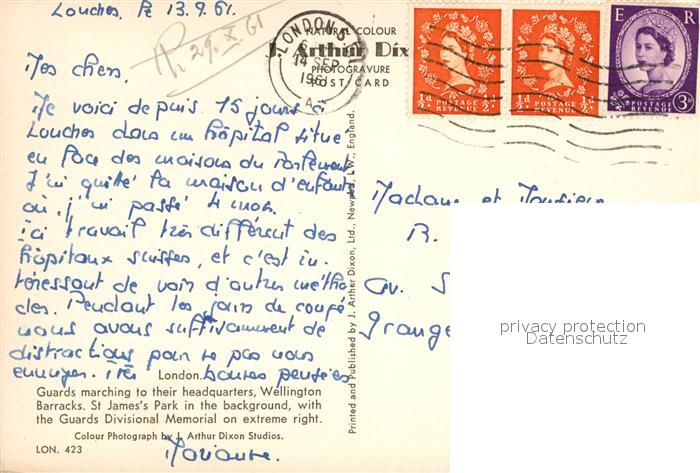 Londres, le 13.9.61.
29.X.61
NATURAL COLOUR
J. Arthur Dix
PHOTOGRAVURE
POST CARD
LONDON S.
14 SEP
1961
A
½d POSTAGE REVENUE ½d
½d POSTAGE REVENUE ½d
E R
POSTAGE REVENUE 3D
Mes chers,
Me voici depuis 15 jours à
Londres dans un hôpital situé
en face des maisons du Parlement
J'ai quitté la maison d'enfants
où j'ai passé 4 mois.
Ici travail très différent des
hôpitaux suisses, et c'est in-
téressant de voir d'autres métho
des. Pendant les jours de congé
nous avons suffisamment de
distractions pour ne pas nous
ennuyer. Très bonnes pensées
Marianne.
Madame et Monsieur
R.
av. S
Grange
Printed and Published by J. Arthur Dixon, Ltd., Newport, I.W., England.
London.
Guards marching to their headquarters, Wellington
Barracks. St James's Park in the background, with
the Guards Divisional Memorial on extreme right.
Colour Photograph by J. Arthur Dixon Studios.
LON. 423
privacy protection
Datenschutz